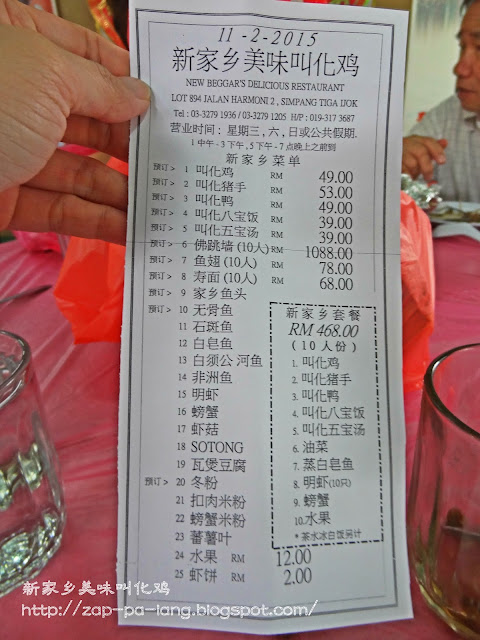 11-2-2015
新家乡美味叫化鸡
NEW BEGGAR'S DELICIOUS RESTAURANT
LOT 894 JALAN HARMONI 2 , SIMPANG TIGA IJOK
Tel : 03-3279 1936 / 03-3279 1205 H/P : 019-317 3687
营业时间 : 星期三 , 六 , 日或公共假期.
1 中午 - 3 下午 , 5 下午 - 7 点晚上之前到
新家乡菜单
预订 > 1 叫化鸡 RM 49.00
预订 > 2 叫化猪手 RM 53.00
预订 > 3 叫化鸭 RM 49.00
预订 > 4 叫化八宝饭 RM 39.00
预订 > 5 叫化五宝汤 RM 39.00
预订 > 6 佛跳墙 (10人) RM 1088.00
预订 > 7 鱼翅 (10人) RM 78.00
预订 > 8 寿面 (10人) RM 68.00
预订 > 9 家乡鱼头
预订 > 10 无骨鱼
11 石斑鱼
12 白皂鱼
13 白须公 河鱼
14 非洲鱼
15 明虾
16 螃蟹
17 虾菇
18 SOTONG
19 瓦煲豆腐
预订 > 20 冬粉
21 扣肉米粉
22 螃蟹米粉
23 蕃薯叶
24 水果 RM 12.00
25 虾饼 RM 2.00
新家乡套餐
RM 468.00
( 10 人份 )
1. 叫化鸡
2. 叫化猪手
3. 叫化鸭
4. 叫化八宝饭
5. 叫化五宝汤
6. 油菜
7. 蒸白皂鱼
8. 明虾 (10只)
9. 螃蟹
10. 水果
* 茶水冰白饭另计
新家乡美味叫化鸡
http://zap-pa-lang.blogspot.com/